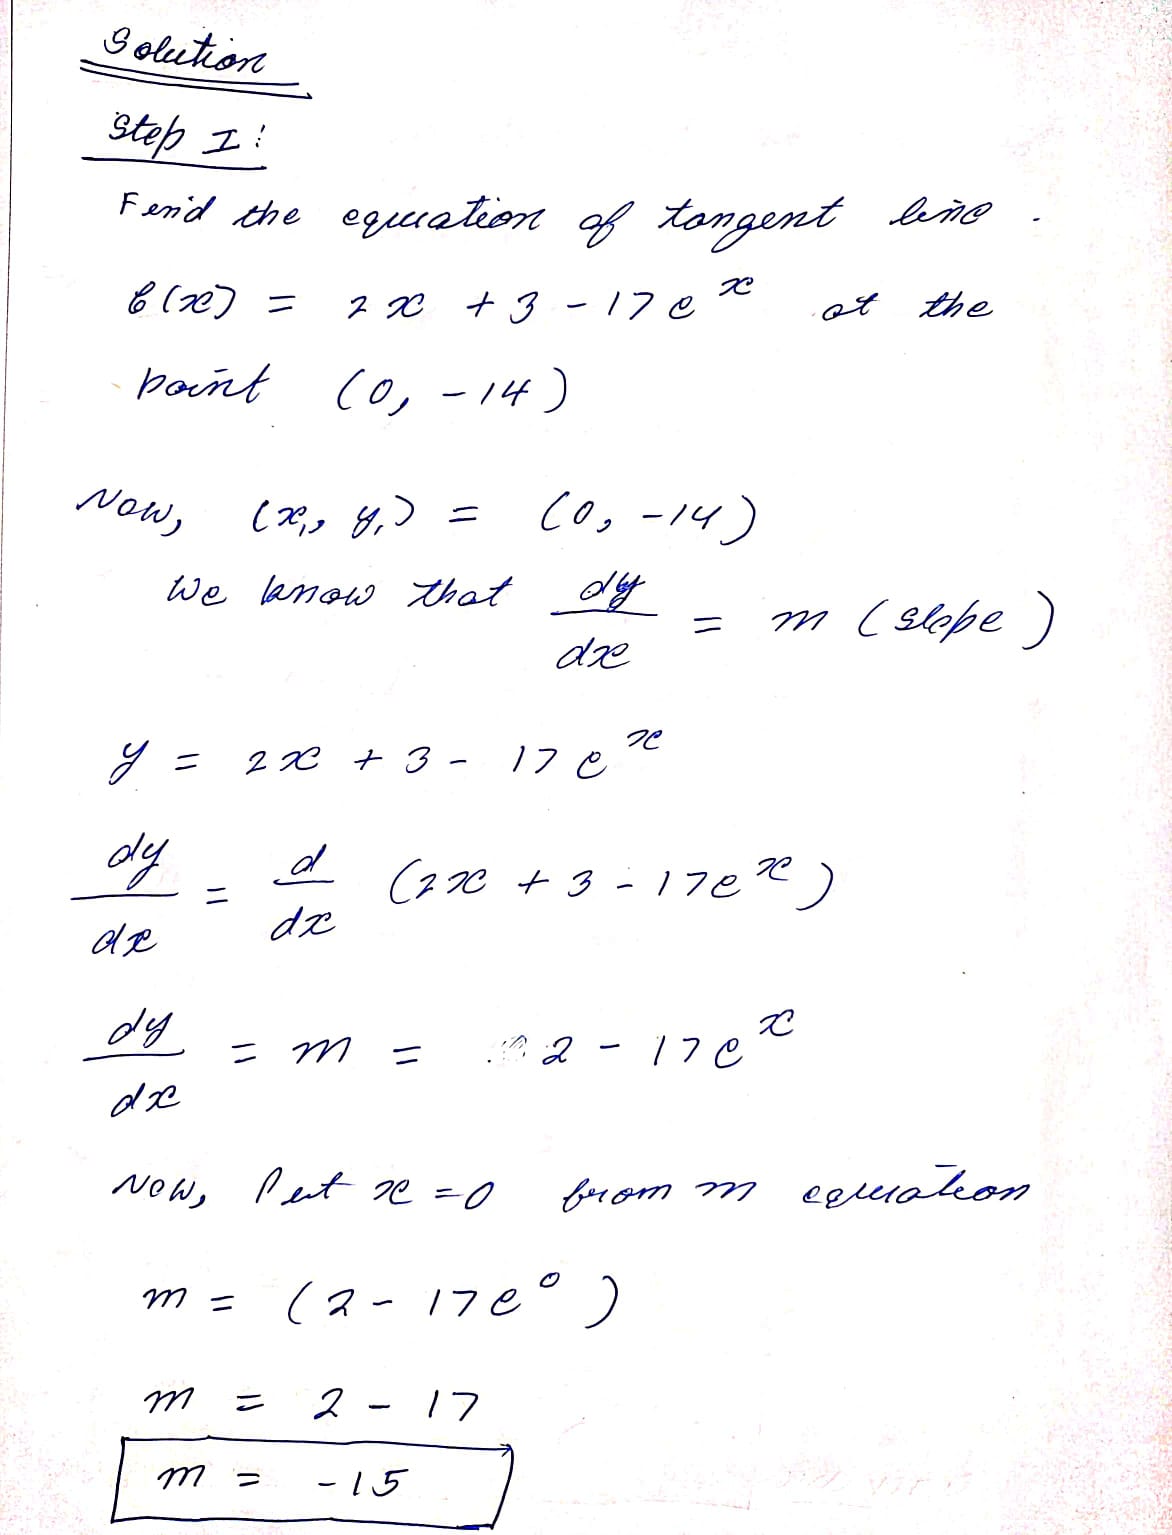 Solution
Step I:
Find the equation of tangent line.
f(x) = 2x + 3 - 17e^x at the
point (0, -14)
Now, (x₁, y₁) = (0, -14)
We know that dy/dx = m (slope)
y = 2x + 3 - 17e^x
dy/dx = d/dx (2x + 3 - 17e^x)
dy/dx = m = 2 - 17e^x
Now, Put x = 0 from m equation
m = (2 - 17e⁰)
m = 2 - 17
m = -15